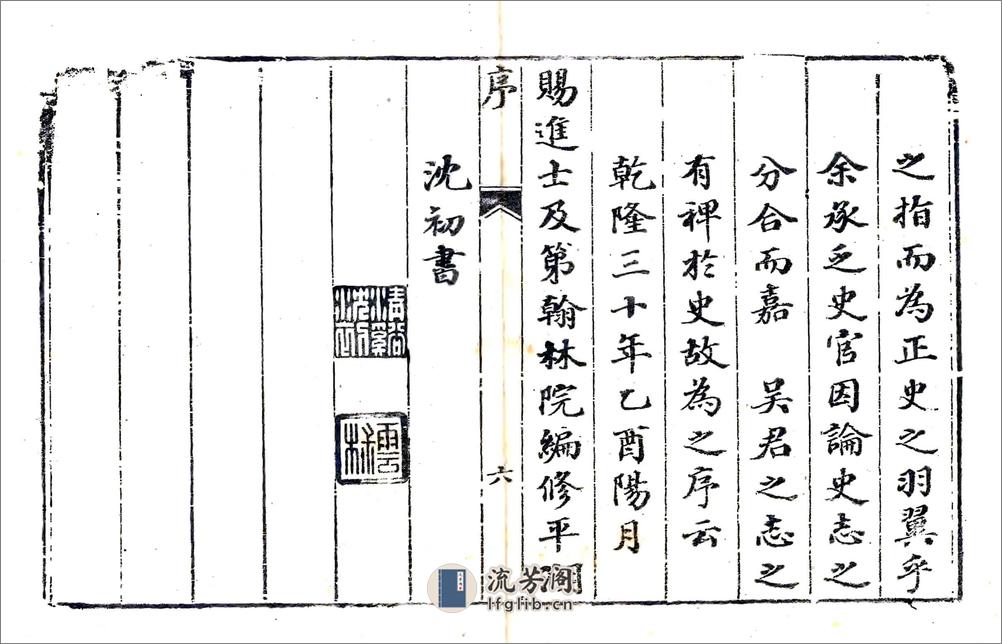 之指而為正史之羽翼乎
余承乏史官因論史志之
分合而嘉　吳君之志之
有裨於史故為之序云
乾隆三十年乙酉陽月
賜進士及第翰林院編修平湖
序
六
沈初書
雲林
流芳阁
lfglib.cn